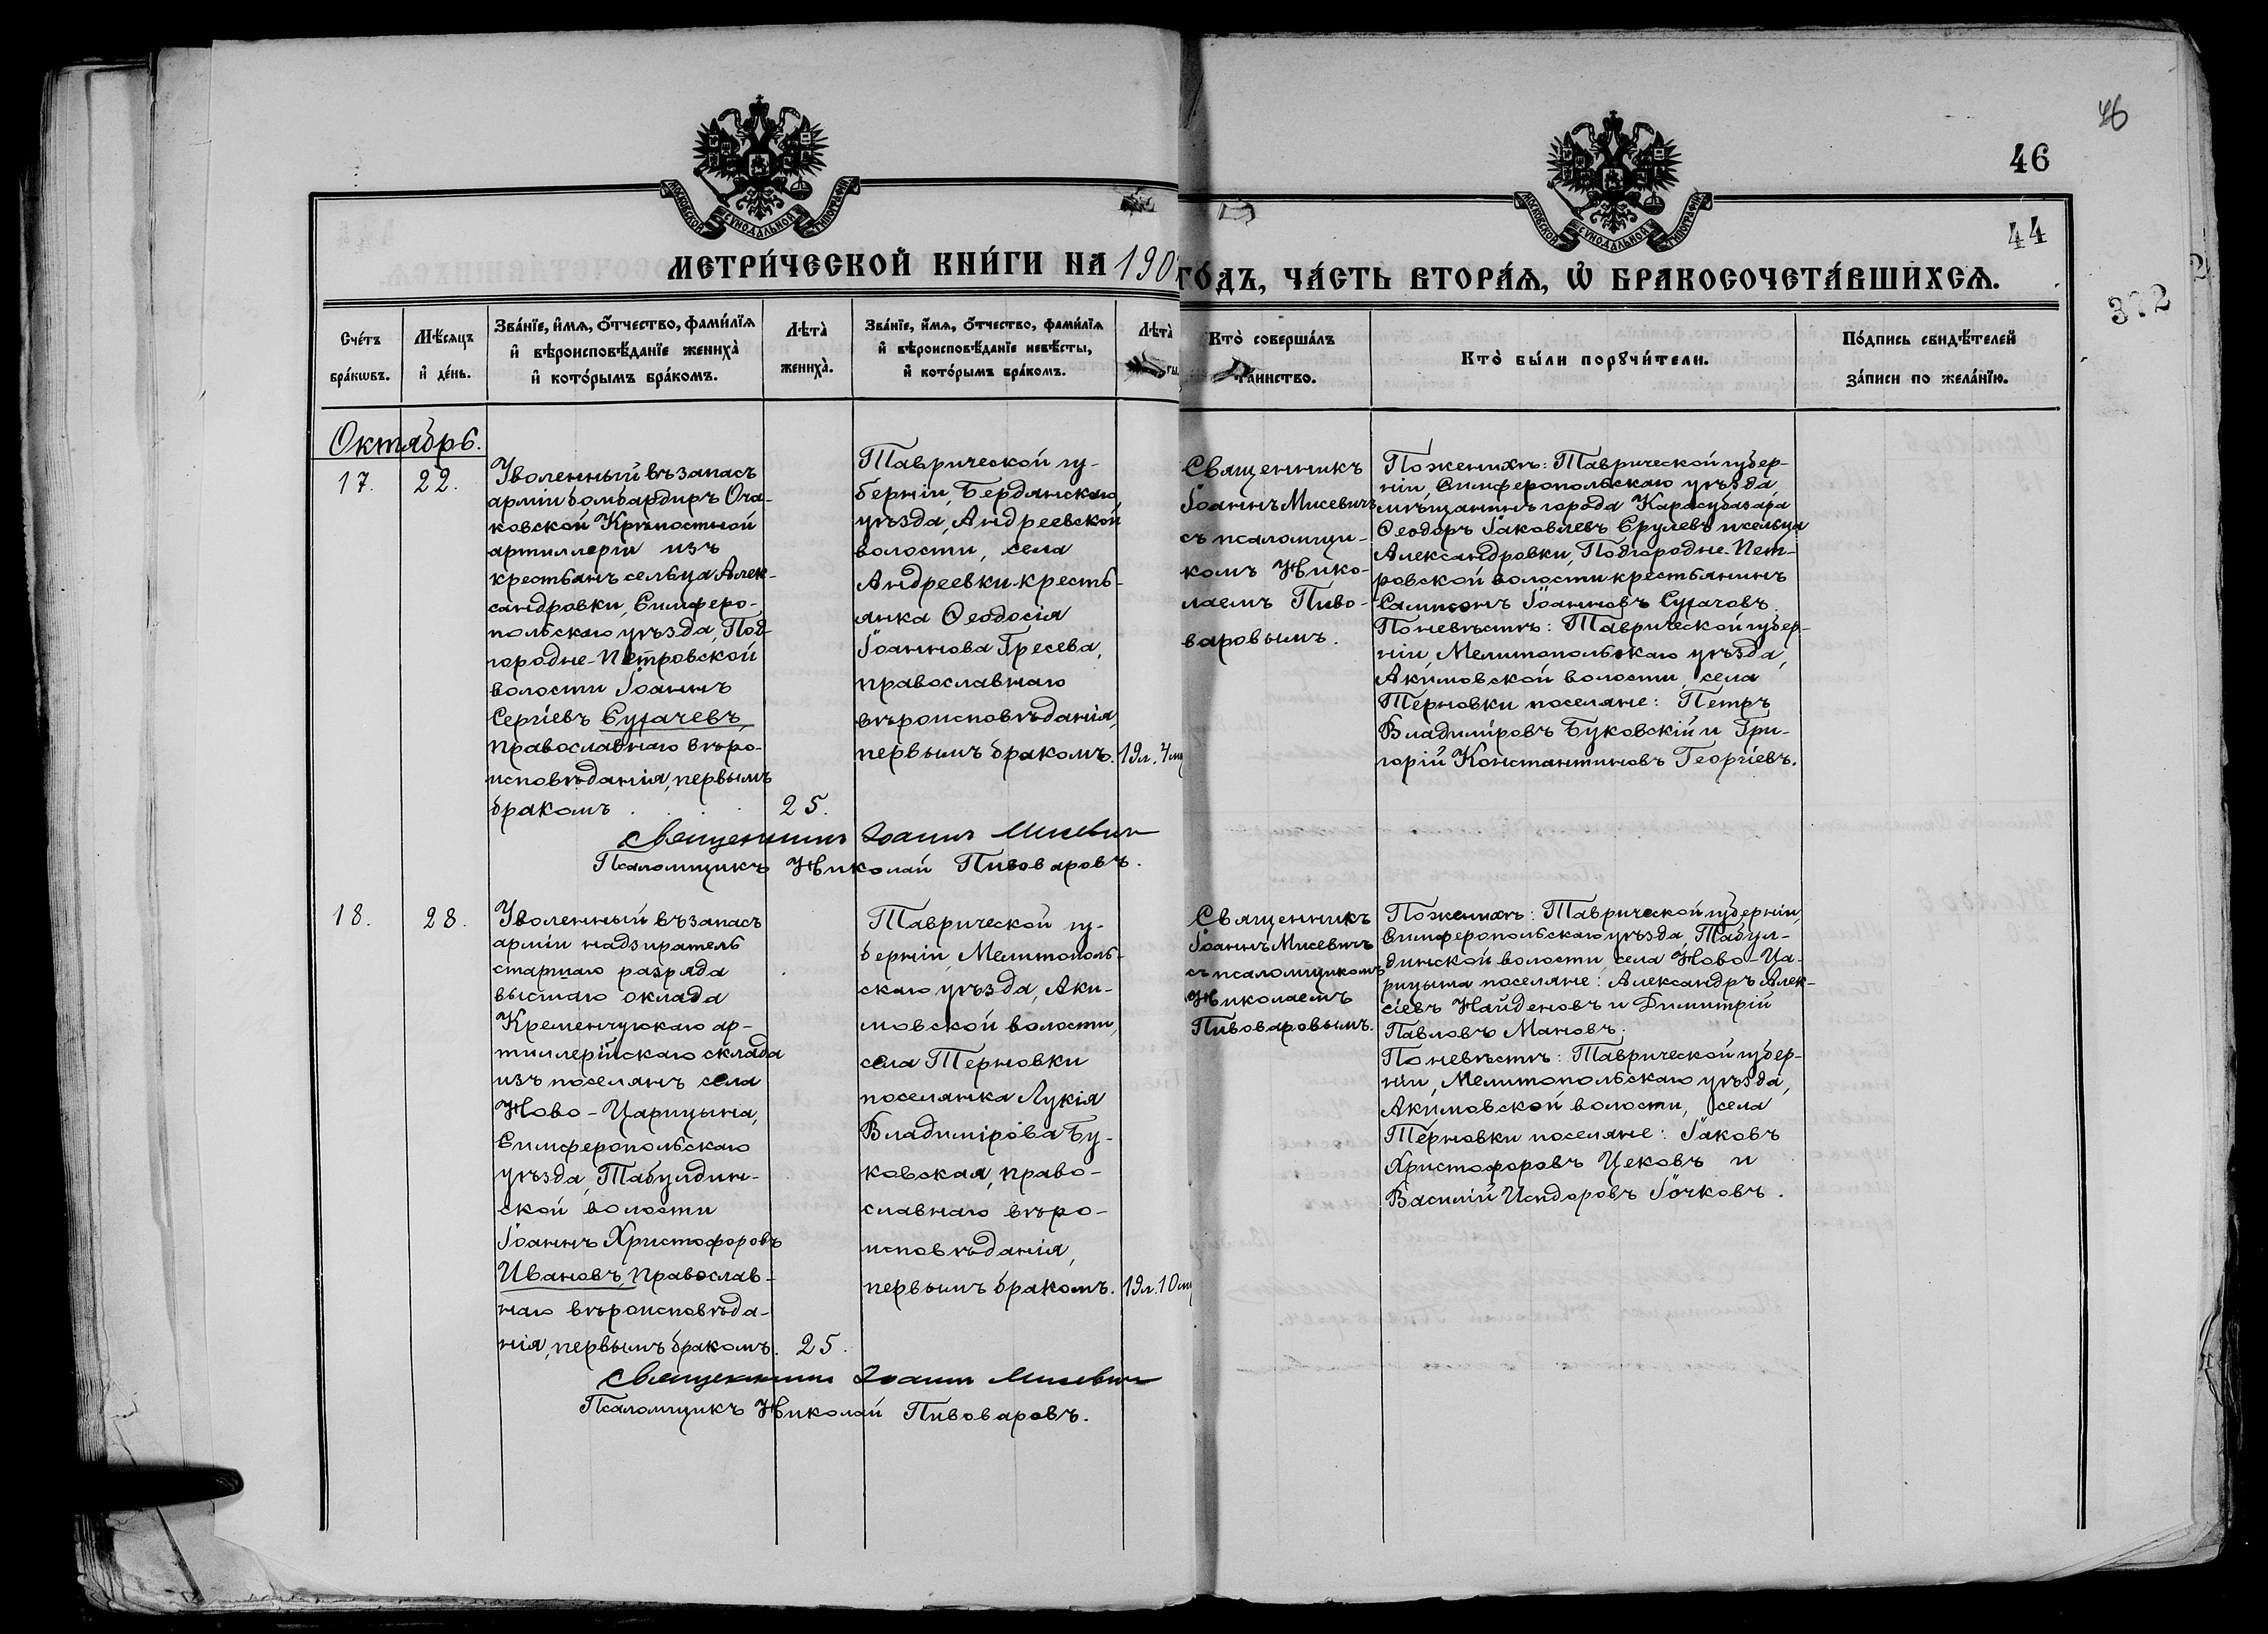 46
46
44
372
МОСКОВСКОЙ СѴНОДАЛЬНОЙ ТИПОГРАФІИ
МОСКОВСКОЙ СѴНОДАЛЬНОЙ ТИПОГРАФІИ
МЕТРИ́ЧЕСКОЙ КНИ́ГИ НА 190
ГО́ДЪ, ЧА́СТЬ ВТОРА́Ѧ, Ѽ БРАКОСОЧЕТА́ВШИХСѦ.
Сче́тъ
бра́кѡвъ.
Мѣ́сѧцъ
и҆ де́нь.
Зва́нїе, и҆́мѧ, ѻ҆́тчество, фами́лїѧ
и҆ вѣроисповѣ́данїе жениха̀
и҆ кото́рымъ бра́комъ.
Лѣта̀
жениха̀.
Зва́нїе, и҆́мѧ, ѻ҆́тчество, фами́лїѧ
и҆ вѣроисповѣ́данїе невѣ́сты,
и҆ кото́рымъ бра́комъ.
Лѣта̀
Кто̀ соверша́лъ
та́инство.
Кто̀ бы́ли порꙋчи́тели.
По́дпись свидѣ́телей
за́писи по жела́нїю.
Октябрь.
17.
22.
Уволенный въ запасъ
арміи бомбардиръ Оча-
ковской Крѣпостной
артиллеріи изъ
крестьянъ сельца Алек-
сандровки, Симферо-
польскаго уѣзда, Под-
городне-Петровской
волости Іоаннъ
Сергіевъ Сугачевъ,
православнаго вѣро-
исповѣданія, первымъ
бракомъ
25.
Таврической гу-
берніи, Бердянскаго
уѣзда, Андреевской
волости, села
Андреевки кресть-
янка Ѳеодосія
Іоаннова Гресева,
православнаго
вѣроисповѣданія,
первымъ бракомъ.
19л. 4 мѣ
Священникъ
Іоаннъ Мисевичъ
съ псаломщи-
комъ Нико-
лаемъ Пиво-
варовымъ.
По женихѣ: Таврической губер-
ніи, Симферопольскаго уѣзда
мѣщанинъ города Карасубазара
Ѳеодоръ Іаковлевъ Ерулевъ и сельца
Александровки, Подгородне-Пет-
ровской волости крестьянинъ
Сампсонъ Іоанновъ Сугачовъ.
По невѣстѣ: Таврической губер-
ніи, Мелитопольскаго уѣзда,
Акимовской волости, села
Терновки поселяне: Петръ
Владиміровъ Буковскій и Гри-
горій Константиновъ Георгіевъ.
Священникъ Іоаннъ Мисевичъ
Псаломщикъ Николай Пивоваровъ.
18.
28.
Уволенный въ запасъ
арміи надзиратель
старшаго разряда
высшаго оклада
Кременчугскаго ар-
тиллерійскаго склада
изъ поселянъ села
Ново-Царицына,
Симферопольскаго
уѣзда, Табулдин-
ской волости
Іоаннъ Христофоровъ
Ивановъ, православ-
наго вѣроисповѣда-
нія, первымъ бракомъ.
25.
Таврической гу-
берніи, Мелитополь-
скаго уѣзда, Аки-
мовской волости,
села Терновки
поселянка Лукія
Владимірова Бу-
ковская, право-
славнаго вѣро-
исповѣданія,
первымъ бракомъ.
19л. 10 мѣ
Священникъ
Іоаннъ Мисевичъ
съ псаломщикомъ
Николаемъ
Пивоваровымъ.
По женихѣ: Таврической губерніи,
Симферопольскаго уѣзда, Табул-
динской волости села Ново-Ца-
рицына поселяне: Александръ Алек-
сіевъ Найденовъ и Димитрій
Павловъ Мановъ.
По невѣстѣ: Таврической губер-
ніи, Мелитопольскаго уѣзда,
Акимовской волости, села
Терновки поселяне: Іаковъ
Христофоровъ Цековъ и
Василій Исидоровъ Іочковъ.
Священникъ Іоаннъ Мисевичъ
Псаломщикъ Николай Пивоваровъ.